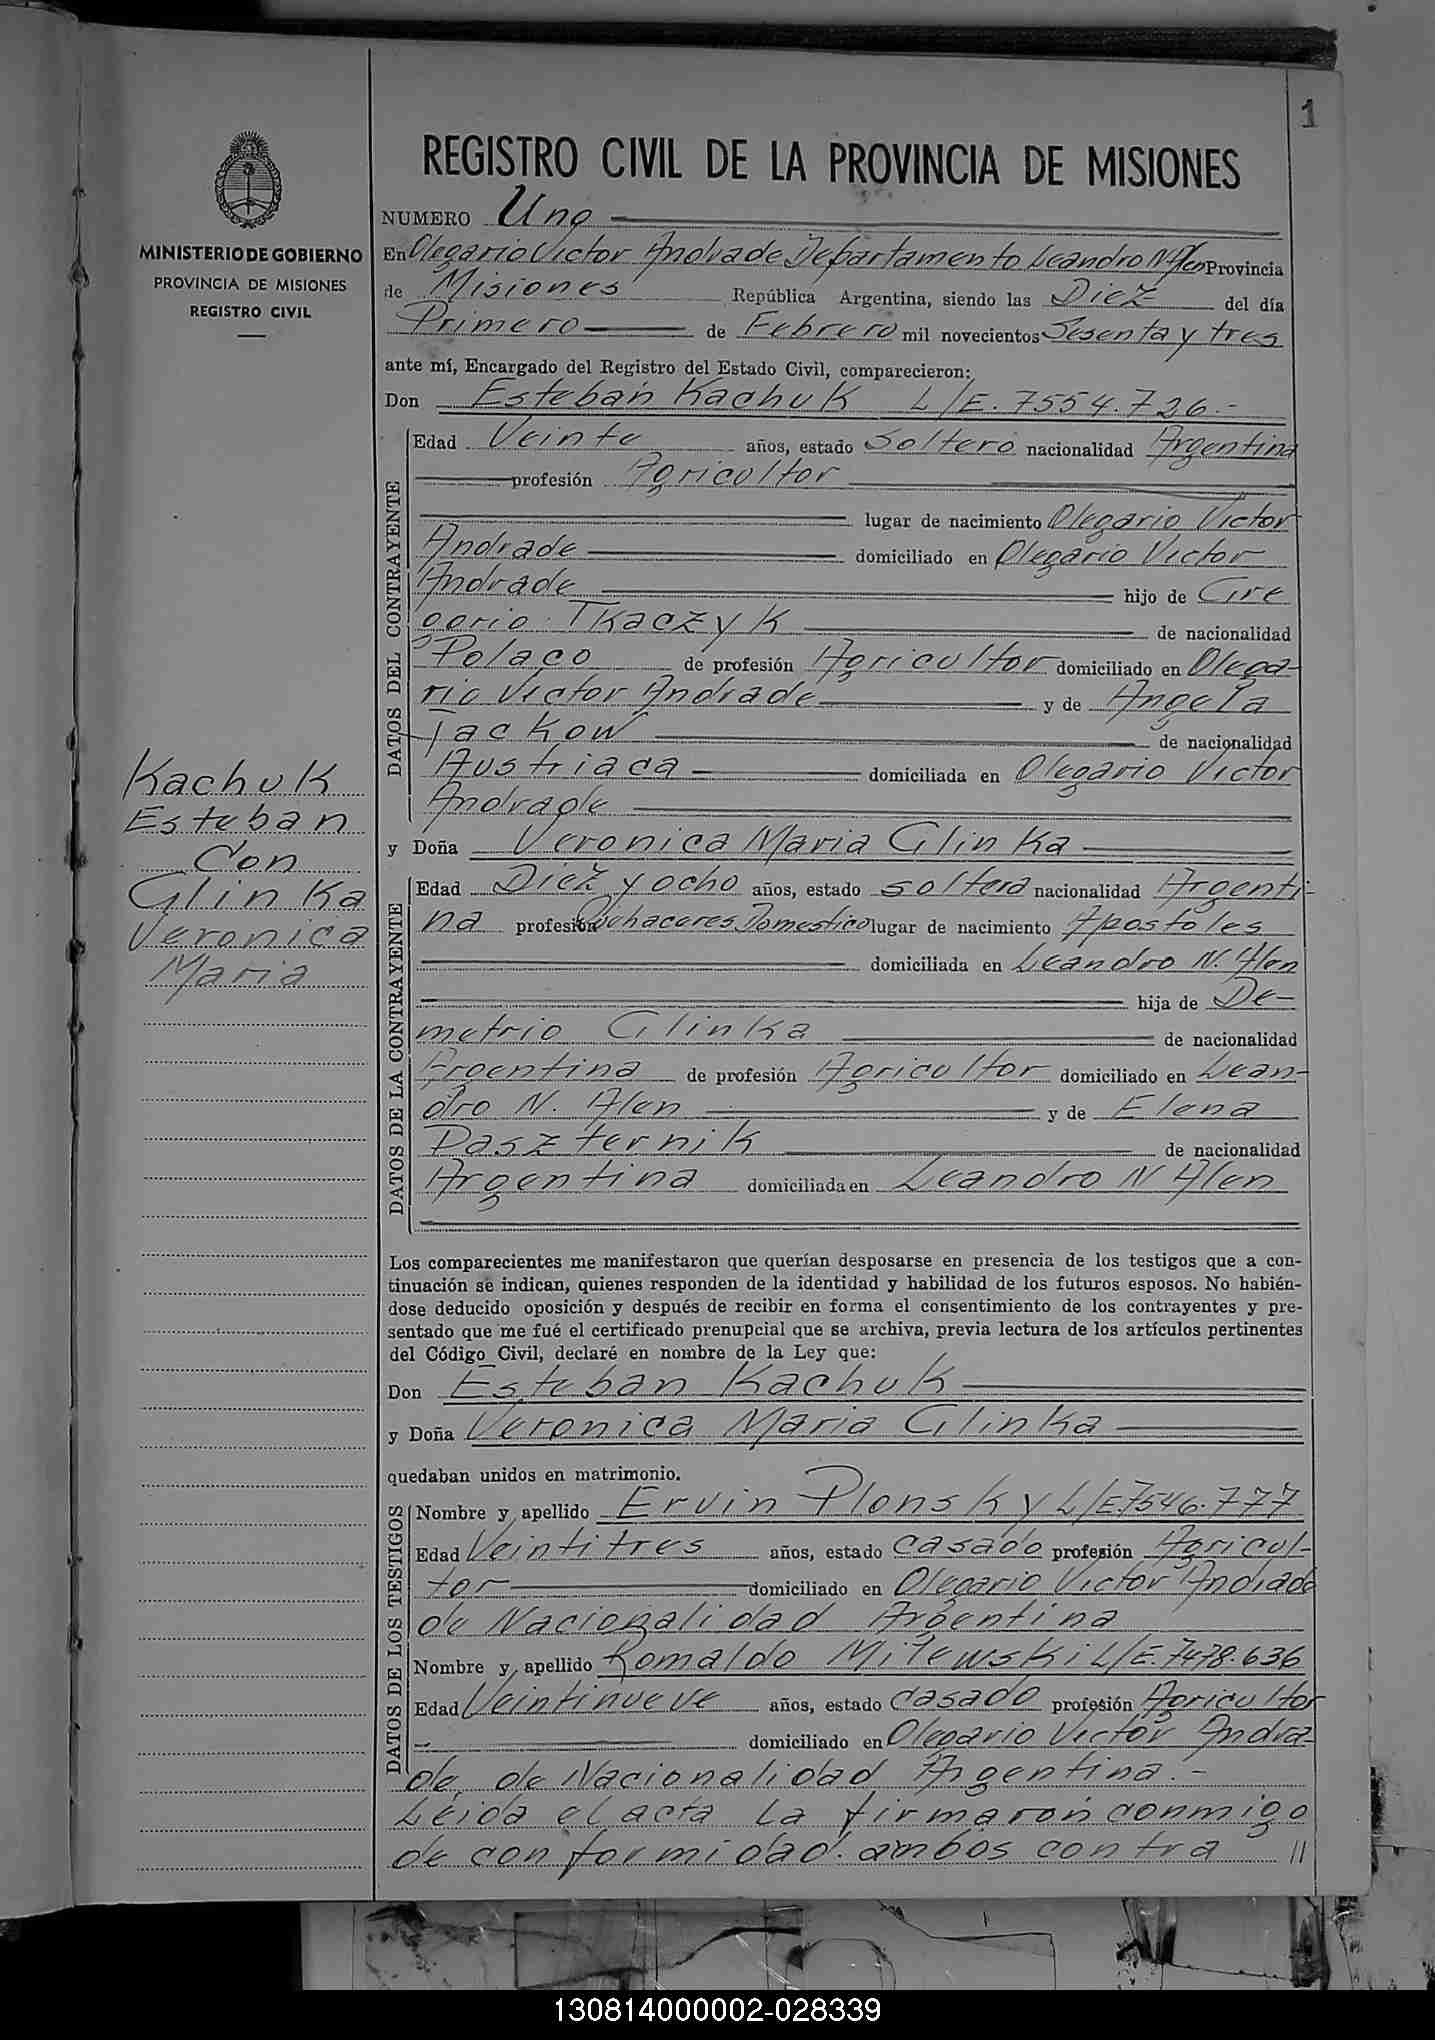 1
REGISTRO CIVIL DE LA PROVINCIA DE MISIONES
MINISTERIO DE GOBIERNO
PROVINCIA DE MISIONES
REGISTRO CIVIL
Kachuk
Esteban
Con
Glinka
Veronica
Maria
NUMERO Uno
En Olegario Victor Andrade Departamento Leandro N Alen Provincia
de Misiones República Argentina, siendo las Diez del día
Primero de Febrero mil novecientos Sesenta y tres
ante mí, Encargado del Registro del Estado Civil, comparecieron:
Don Esteban Kachuk L/E. 7554.726.-
DATOS DEL CONTRAYENTE
Edad Veinte años, estado Soltero nacionalidad Argentina
profesión Agricultor
lugar de nacimiento Olegario Victor
Andrade domiciliado en Olegario Victor
Andrade hijo de Gre
gorio Tkaczyk de nacionalidad
Polaco de profesión Agricultor domiciliado en Olega-
rio Victor Andrade y de Angela
Tackow de nacionalidad
Austriaca domiciliada en Olegario Victor
Andrade
y Doña Veronica Maria Glinka
DATOS DE LA CONTRAYENTE
Edad Diez y ocho años, estado soltera nacionalidad Argenti-
na profesión Quehaceres Domestico lugar de nacimiento Apostoles
domiciliada en Leandro N. Alen
hija de De-
metrio Glinka de nacionalidad
Argentina de profesión Agricultor domiciliado en Lean-
dro N. Alen y de Elena
Paszternik de nacionalidad
Argentina domiciliada en Leandro N Alen
Los comparecientes me manifestaron que querían desposarse en presencia de los testigos que a con-
tinuación se indican, quienes responden de la identidad y habilidad de los futuros esposos. No habién-
dose deducido oposición y después de recibir en forma el consentimiento de los contrayentes y pre-
sentado que me fué el certificado prenupcial que se archiva, previa lectura de los artículos pertinentes
del Código Civil, declaré en nombre de la Ley que:
Don Esteban Kachuk
y Doña Veronica Maria Glinka
quedaban unidos en matrimonio.
DATOS DE LOS TESTIGOS
Nombre y apellido Ervin Plonsky L/E 7546.777
Edad Veintitres años, estado casado profesión Agricul-
tor domiciliado en Olegario Victor Andrade
de Nacionalidad Argentina
Nombre y apellido Romaldo Milewski L/E. 7478.636
Edad Veintinueve años, estado casado profesión Agricultor
domiciliado en Olegario Victor Andra-
de de Nacionalidad Argentina.-
Leida el acta La firmaron conmigo
de conformidad. ambos contra //
130814000002-028339